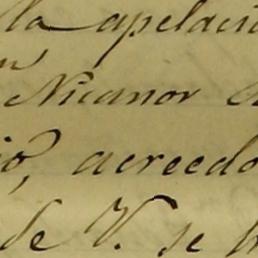 la apelació
Nicanor
io, acreedo
de V. se